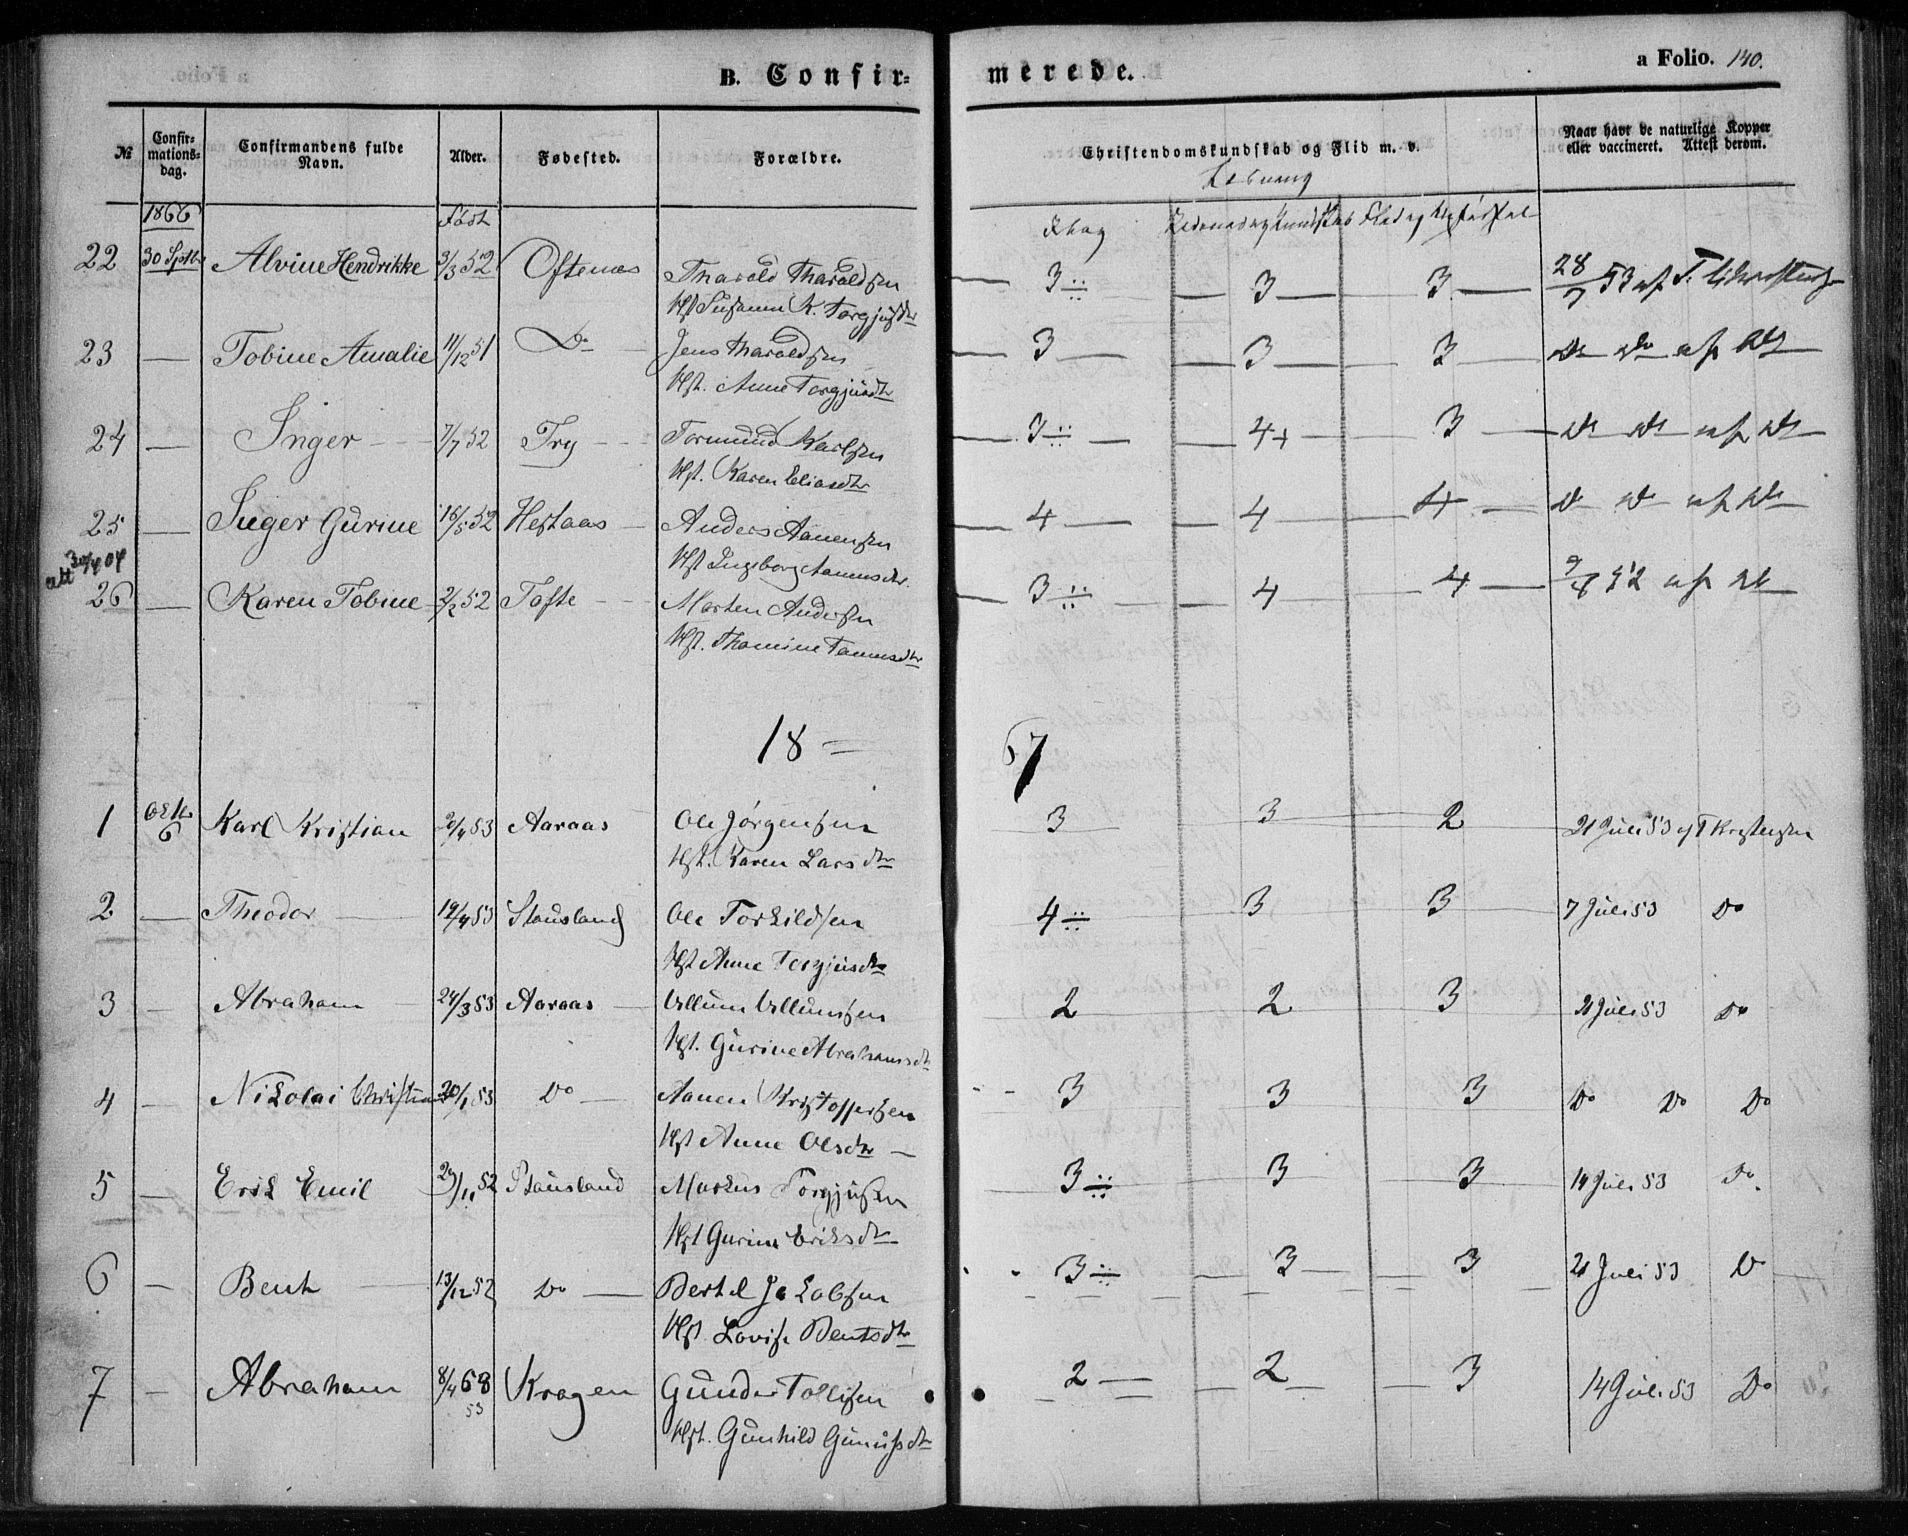 B. Confir-
merede.
a Folio. 140.
№
Confir-
mations-
dag.
Confirmandens fulde
Navn.
Alder.
Fødested.
Forældre.
Christendomskundskab og Flid m. v.
Naar havt de naturlige Kopper
eller vaccineret. Attest derom.
1866
Født
22 30 Sptbr Alvine Hendrikke 3/3 52 Oftenæs Tharald Tharaldsen 3 3 3 28/7 53 af T.
Hst Susanne K. Torgjusdtr
23 — Tobine Amalie 11/12 51 Do Jens Tharaldsen 3 3 3 Do Do af Do
Hst. Anne Torgjusdtr
24 — Inger 7/7 52 Try Tormund Karlsen 3 4+ 3 Do Do af Do
Hst. Karen Eliasdtr
25 — Inger Gurine 16/5 52 Heftaas Anders Aanensen 4 4 4 Do Do af Do
Hst Ingeborg Aanensdtr
att 30/4 04
26 — Karen Tobine 2/2 52 Tofte Morten Andersen 3 4 4 9/8 52 af Do
Hst. Thomine Tannesdtr
18 = 67
1 Oktbr 6 Karl Kristian 20/4 53 Aaraas Ole Jørgensen 3 3 2 21 Juli 53 af T Kristensen
Hst. Karen Larsdtr
2 — Theodor 19/4 53 Stausland Ole Torkildsen 4 3 3 7 Juli 53 Do
Hst Anne Torgjusdtr
3 — Abraham 24/3 53 Aaraas Villum Villumsen 2 2 3 21 Juli 53 Do
Hst. Gurine Abrahamsdtr
4 — Nikolai Christian 20/1 53 Do Aanen Kristoffersen 3 3 3 Do Do Do
Hst Anne Olsdtr —
5 — Erik Emil 29/11 52 Stausland Markus Torgjusen 3 3 3 14 Juli 53 Do
Hst Gurine Eriksdtr
6 — Bent 13/12 52 Do Bertel Jakobsen 3 3 3 21 Juli 53 Do
Hst. Lovise Bentsdtr
7 — Abraham 8/4 68 Kragen Gunder Tollefsen 2 2 3 14 Juli 53 Do
53
Hst. Gunhild